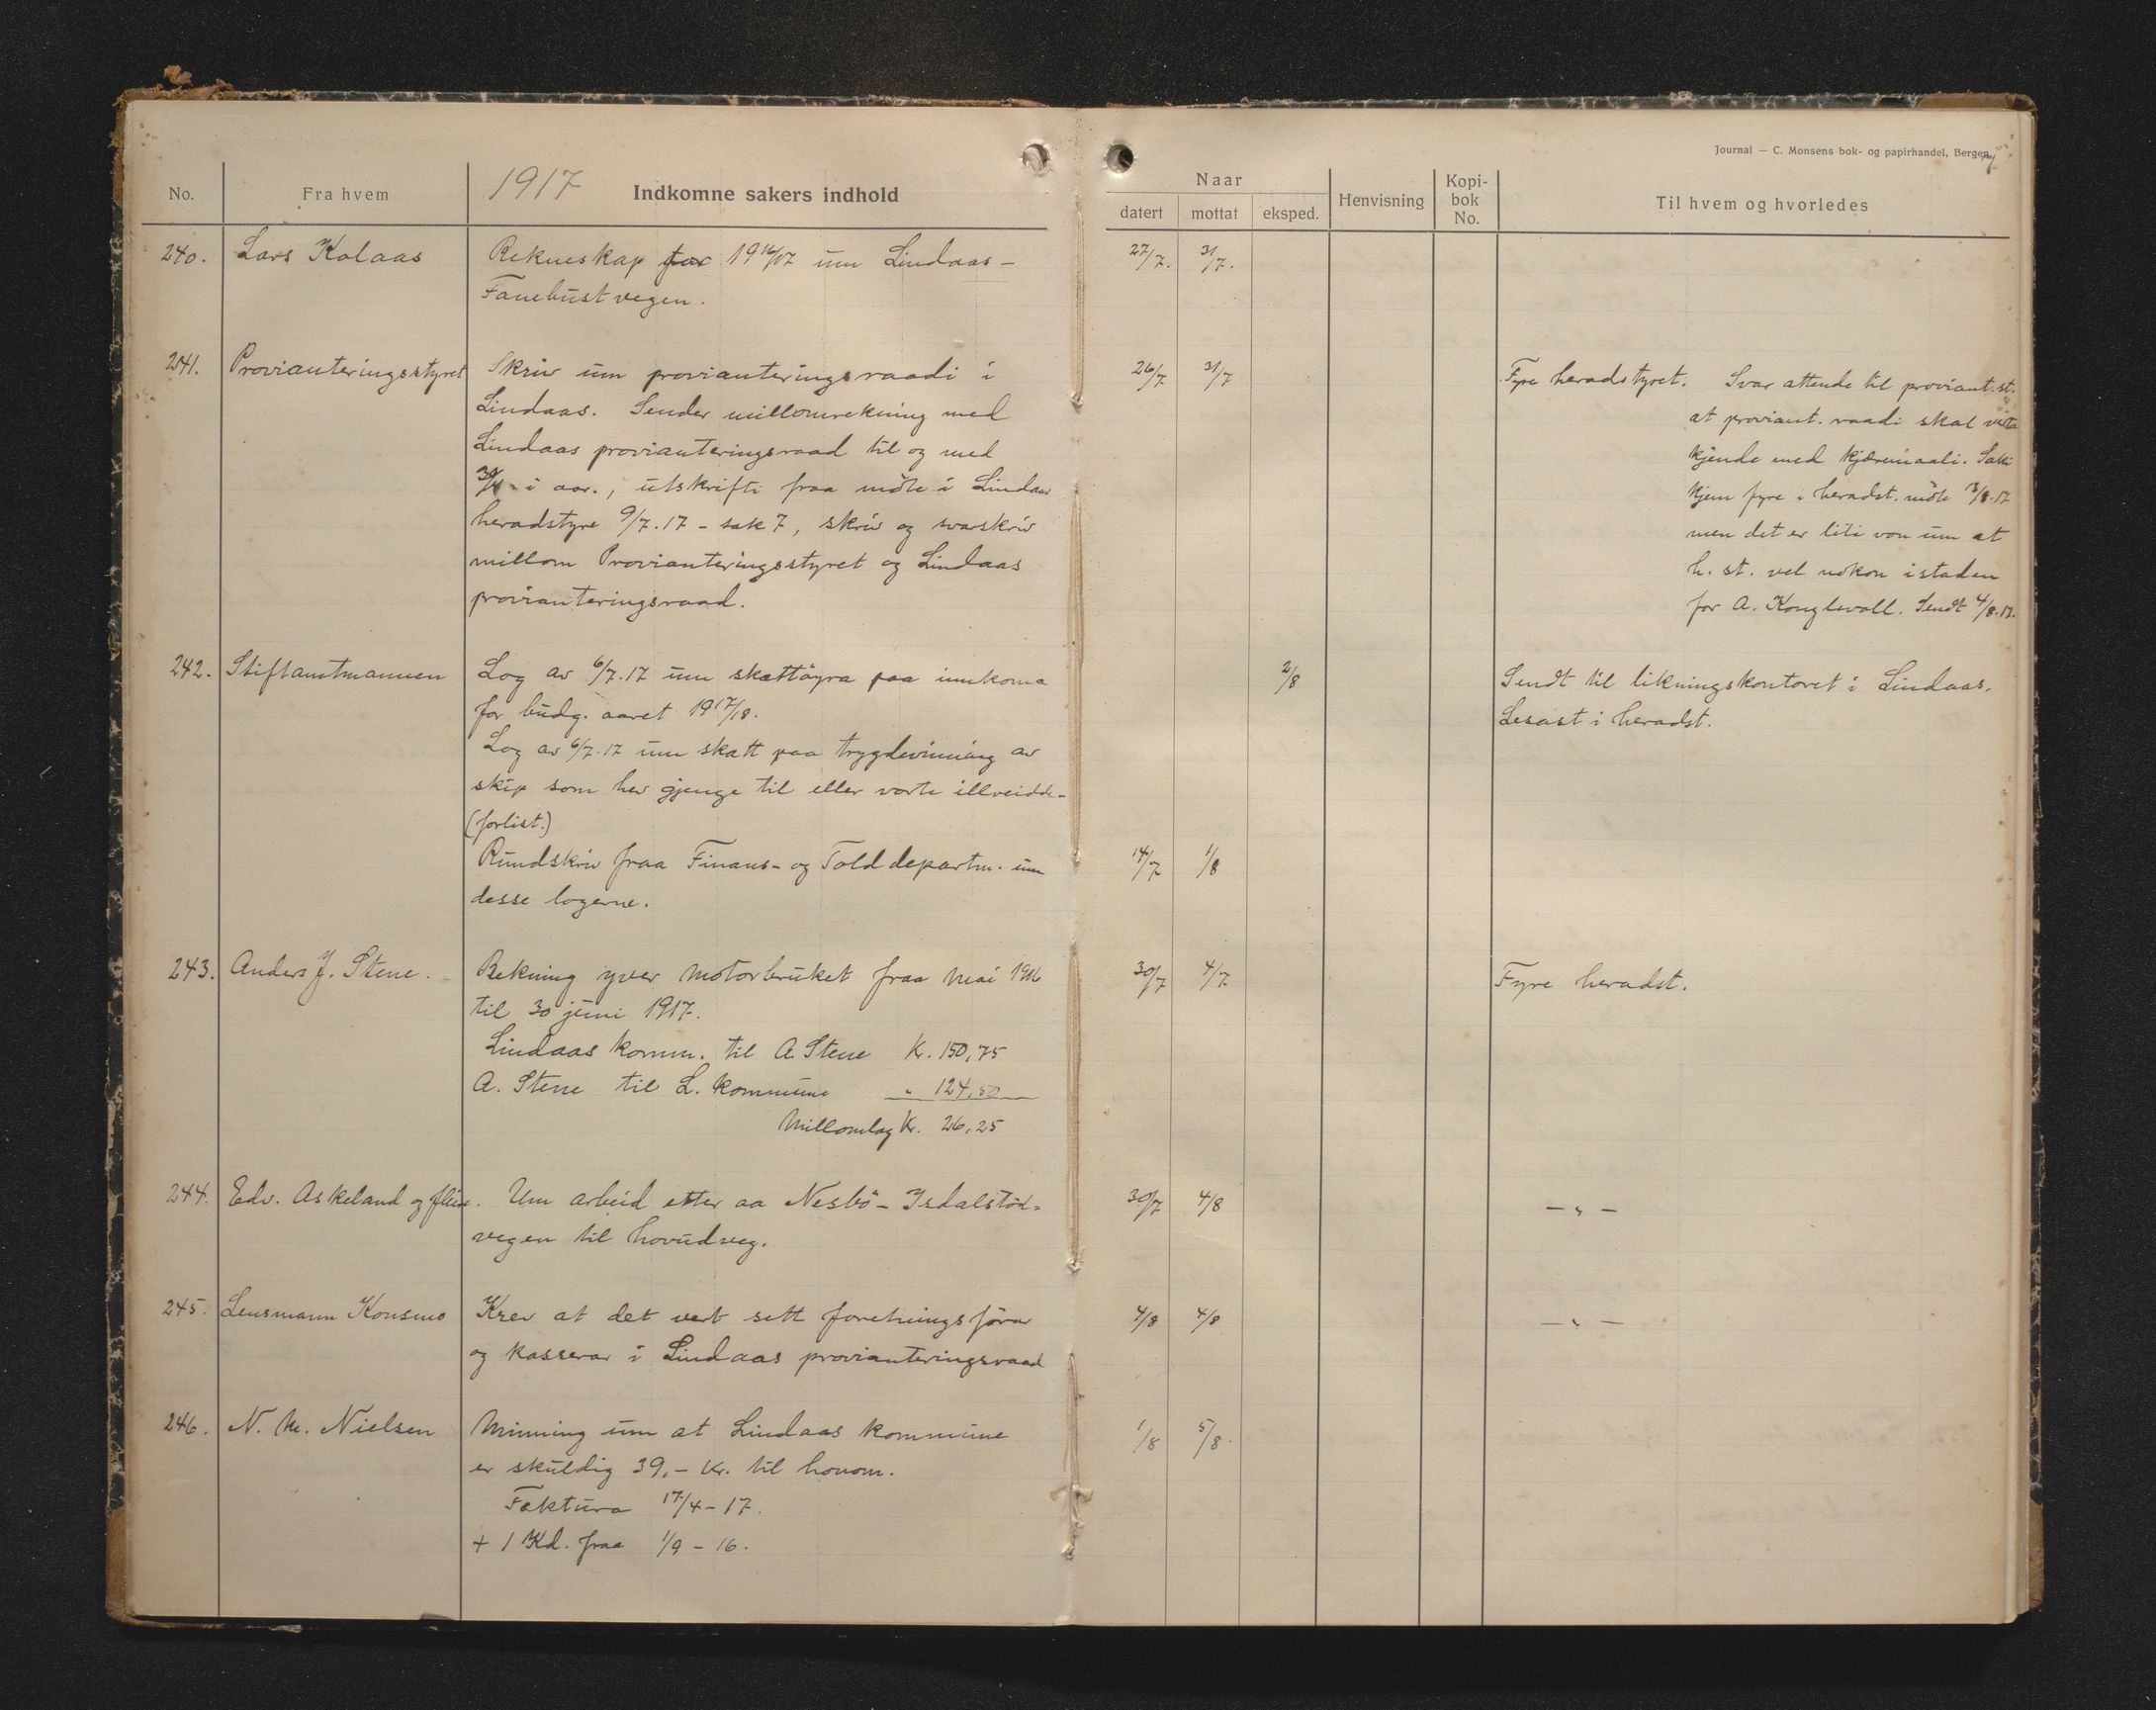 Journal — C. Monsens bok- og papirhandel, Bergen.
No. Fra hvem 1917 Indkomne sakers indhold
Naar
datert mottat eksped. Henvisning Kopi-bok No. Til hvem og hvorledes
240. Lars Kolaas Rekneskap for 1916/17 um Lindaas - 27/7. 31/7.
Fanebust vegen.
241. Provianteringsstyret Skriv um provianteringsraadi i 26/7 31/7 Fyre heradstyret. Svar attende til proviant.st.
Lindaas. Sender millomrekning med at proviant. raadi skal verta
Lindaas provianteringsraad til og med kjende med kjæremaali. Saki
30/4 i aar., utskrifti fraa möte i Lindaas kjem fyre i heradst. möte 13/8.17
heradstyre 9/7.17 - sak 7, skriv og svarskriv men det er liti von um at
millom Provianteringsstyret og Lindaas h. st. vel nokon istaden
provianteringsraad. for A. Konglevoll. Sendt 4/8.17.
242. Stiftamtmannen Log av 6/7.17 um skattöyra paa innkoma 2/8 Sendt til likningskontoret i Lindaas.
for budg. aaret 1917/18. Lesast i heradst.
Log av 6/7.17 um skatt paa trygdevinning av
skip som hev gjenge til eller vorte illveidde -
(forlist.)
Rundskriv fraa Finans- og Tolddepartm. um 14/7 1/8
desse logerne.
243. Anders J. Stene. Rekning yver motorbruket fraa mai 1916 30/7 4/7 Fyre heradst.
til 30 juni 1917.
Lindaas komm. til A. Stene Kr. 150,75
A. Stene til L. kommune " 124,50
Millomlag Kr. 26,25
244. Edv. Askeland og fleire. Um arbeid etter aa Nesbö - Isdalstö- 30/7 4/8 - " -
vegen til hovudveg.
245. Lensmann Konsmo Krev at det vert sett forretningsförar 4/8 4/8 - " -
og kasserar i Lindaas provianteringsraad
246. N. M. Nielsen Minning um at Lindaas kommune 1/8 5/8
er skuldig 39,- kr. til honom.
Faktura 17/4 - 17.
+ 1 Kd. fraa 1/9 - 16.